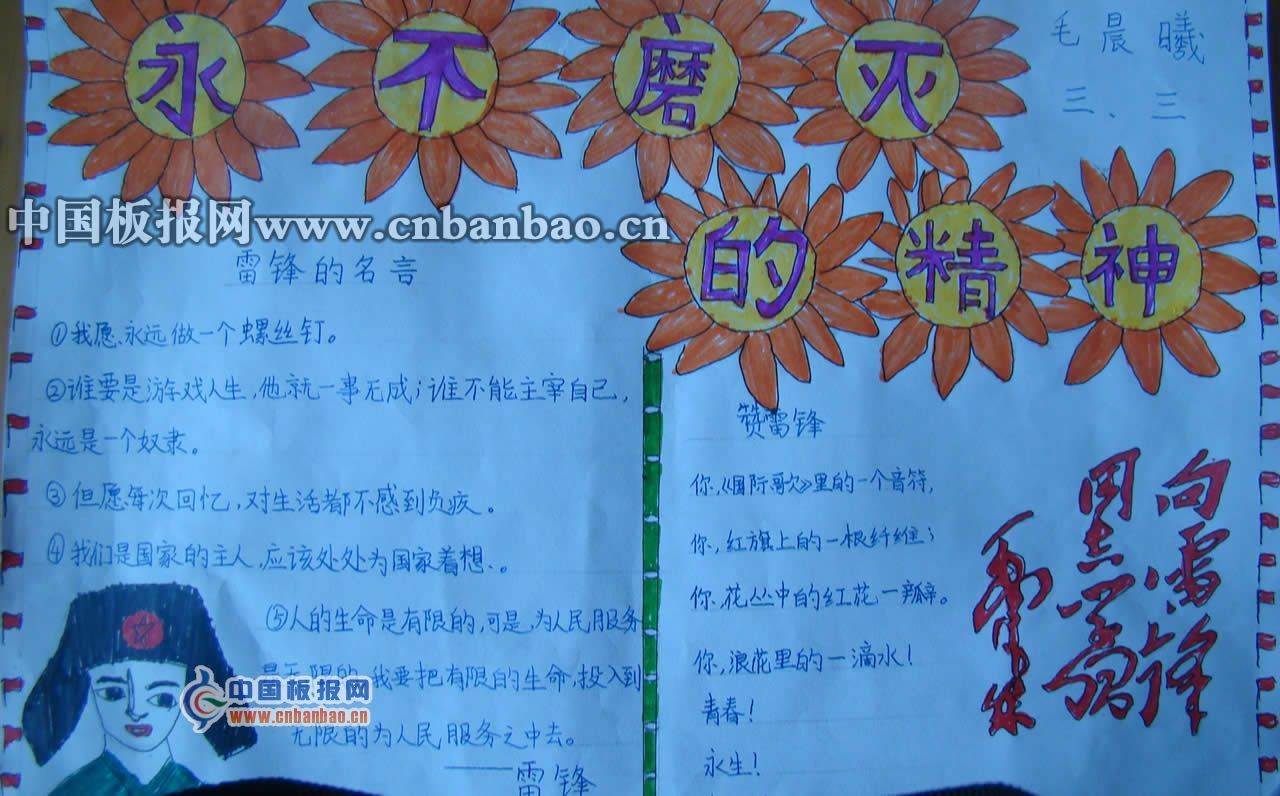 永不磨灭
的精神
毛晨曦
三、三
中国板报网www.cnbanbao.cn
雷锋的名言
①我愿永远做一个螺丝钉。
②谁要是游戏人生,他就一事无成;谁不能主宰自己,
永远是一个奴隶。
③但愿每次回忆,对生活都不感到负疚。
④我们是国家的主人,应该处处为国家着想。
⑤人的生命是有限的,可是,为人民服务
是无限的,我要把有限的生命,投入到
无限的为人民服务之中去。
——雷锋
中国板报网
www.cnbanbao.cn
赞雷锋
你,《国际歌》里的一个音符,
你,红旗上的一根纤维;
你,花丛中的红花一瓣。
你,浪花里的一滴水!
青春!
永生!
向雷锋
同志学习
毛泽东